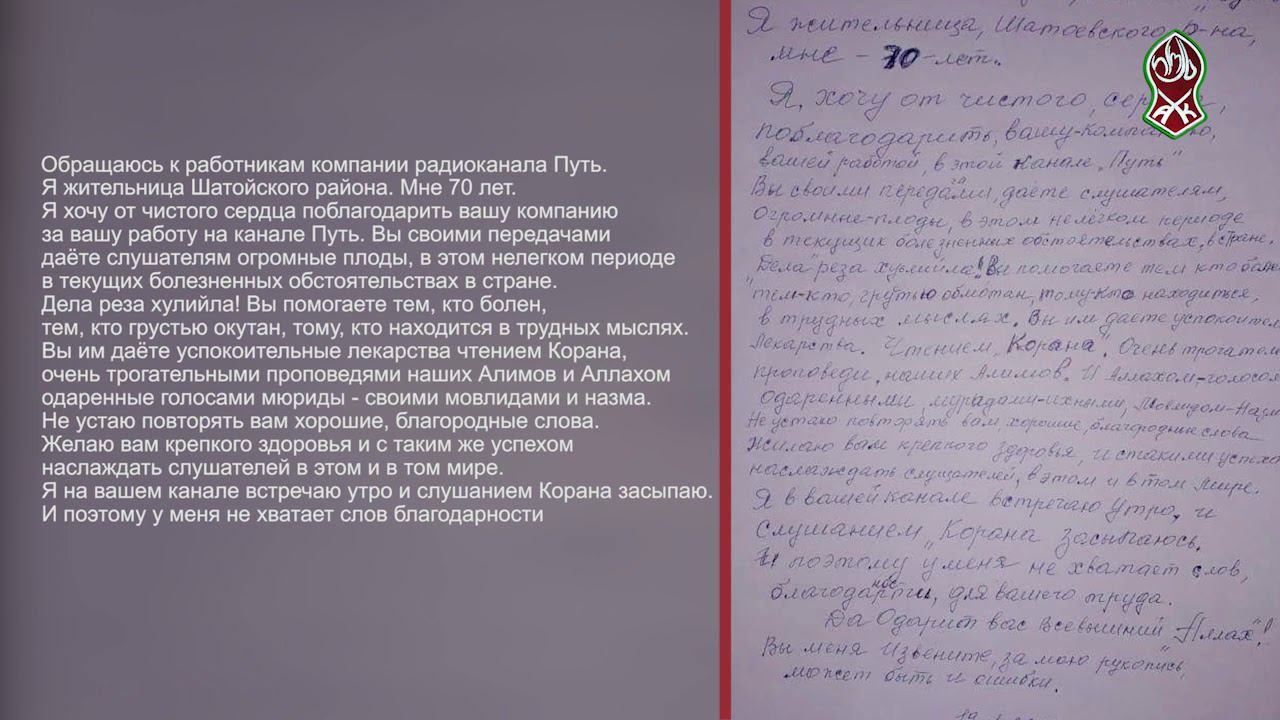 Обращаюсь к работникам компании радиоканала Путь.
Я жительница Шатойского района. Мне 70 лет.
Я хочу от чистого сердца поблагодарить вашу компанию
за вашу работу на канале Путь. Вы своими передачами
даёте слушателям огромные плоды, в этом нелегком периоде
в текущих болезненных обстоятельствах в стране.
Дела реза хулийла! Вы помогаете тем, кто болен,
тем, кто грустью окутан, тому, кто находится в трудных мыслях.
Вы им даёте успокоительные лекарства чтением Корана,
очень трогательными проповедями наших Алимов и Аллахом
одаренные голосами мюриды - своими мовлидами и назма.
Не устаю повторять вам хорошие, благородные слова.
Желаю вам крепкого здоровья и с таким же успехом
наслаждать слушателей в этом и в том мире.
Я на вашем канале встречаю утро и слушанием Корана засыпаю.
И поэтому у меня не хватает слов благодарности
Я жительница, Шатоевского р-на,
мне - 70-лет.
Я, хочу от чистого,
поблагодарить, вашу
вашей работой, в этой канале „Путь"
Вы своими передачами, даёте слушателям,
огромные-плоды, в этом нелёгком периоде
в текущих болезненных обстоятельствах, в стране.
Дела реза хуьлийла! Вы помогаете тем кто
тем-кто, грутью обмотан, тому-кто находиться,
в трудных мыслях. Вы им даёте
Лекарства. Чтением „Корана". Очень
проповеди, наших Алимов. И Аллахом-голосом
одаренными, мурадами-ихными, Мовлидом-
Не устаю повторять вам хорошие, благородные слова
Жилаю вам крепкого здоровья, и стакими
наслаждать слушателей, в этом и в том мире.
Я в вашей канале встречаю Утро, и
слушанием „Корана засыпаюсь.
И поэтому у меня не хватает слов,
благодарности, для вашего труда.
Да Одарит вас Всевышний „Аллах"!
Вы меня Извените, за мою рукопись,
может быть и ошибки.